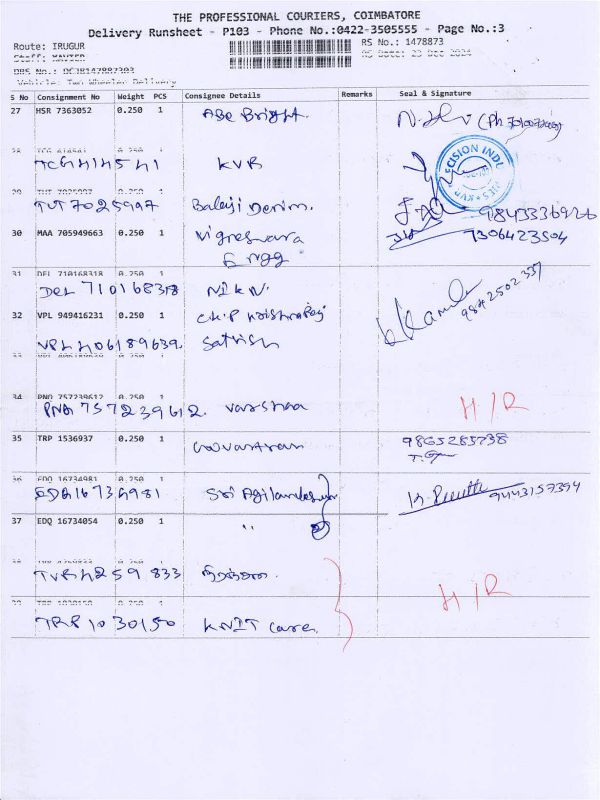 THE PROFESSIONAL COURIERS, COIMBATORE
Delivery Runsheet - P103 - Phone No.:0422-3505555 - Page No.:3
Route: IRUGUR RS No.: 1478873
Staff: XAVIER RS Date: 23 Dec 2024
DRS No.: DCJB147887303
Vehicle: Two Wheeler Delivery
S No Consignment No Weight PCS Consignee Details Remarks Seal & Signature
27 HSR 7363052 0.250 1 ABC Bright.
28 0.250 1
TCG414541 KVR
CISION INDU
29 TUT 7025997 0.250 1
TUT 7025997 Balaji Denim. 9843336926
30 MAA 705949663 0.250 1 Vigneswara 7306423504
Engg
31 DEL 710168318 0.250 1
DEL 710168318 NIKN. 9842502337
32 VPL 949416231 0.250 1 C.K.P
VPL 406189639. Sathish
33 0.250 1
34 PNQ 757239612 0.250 1
PNQ 757239612. Varshaa H/R
35 TRP 1536937 0.250 1 9865285738
36 EDQ 16734981 0.250 1
EDQ16734981 Sri 9443157394
37 EDQ 16734054 0.250 1 "
38 0.250 1
TVR4259833 H/R
39 TRP 1030150 0.250 1
TRP1030150 KNIT care.